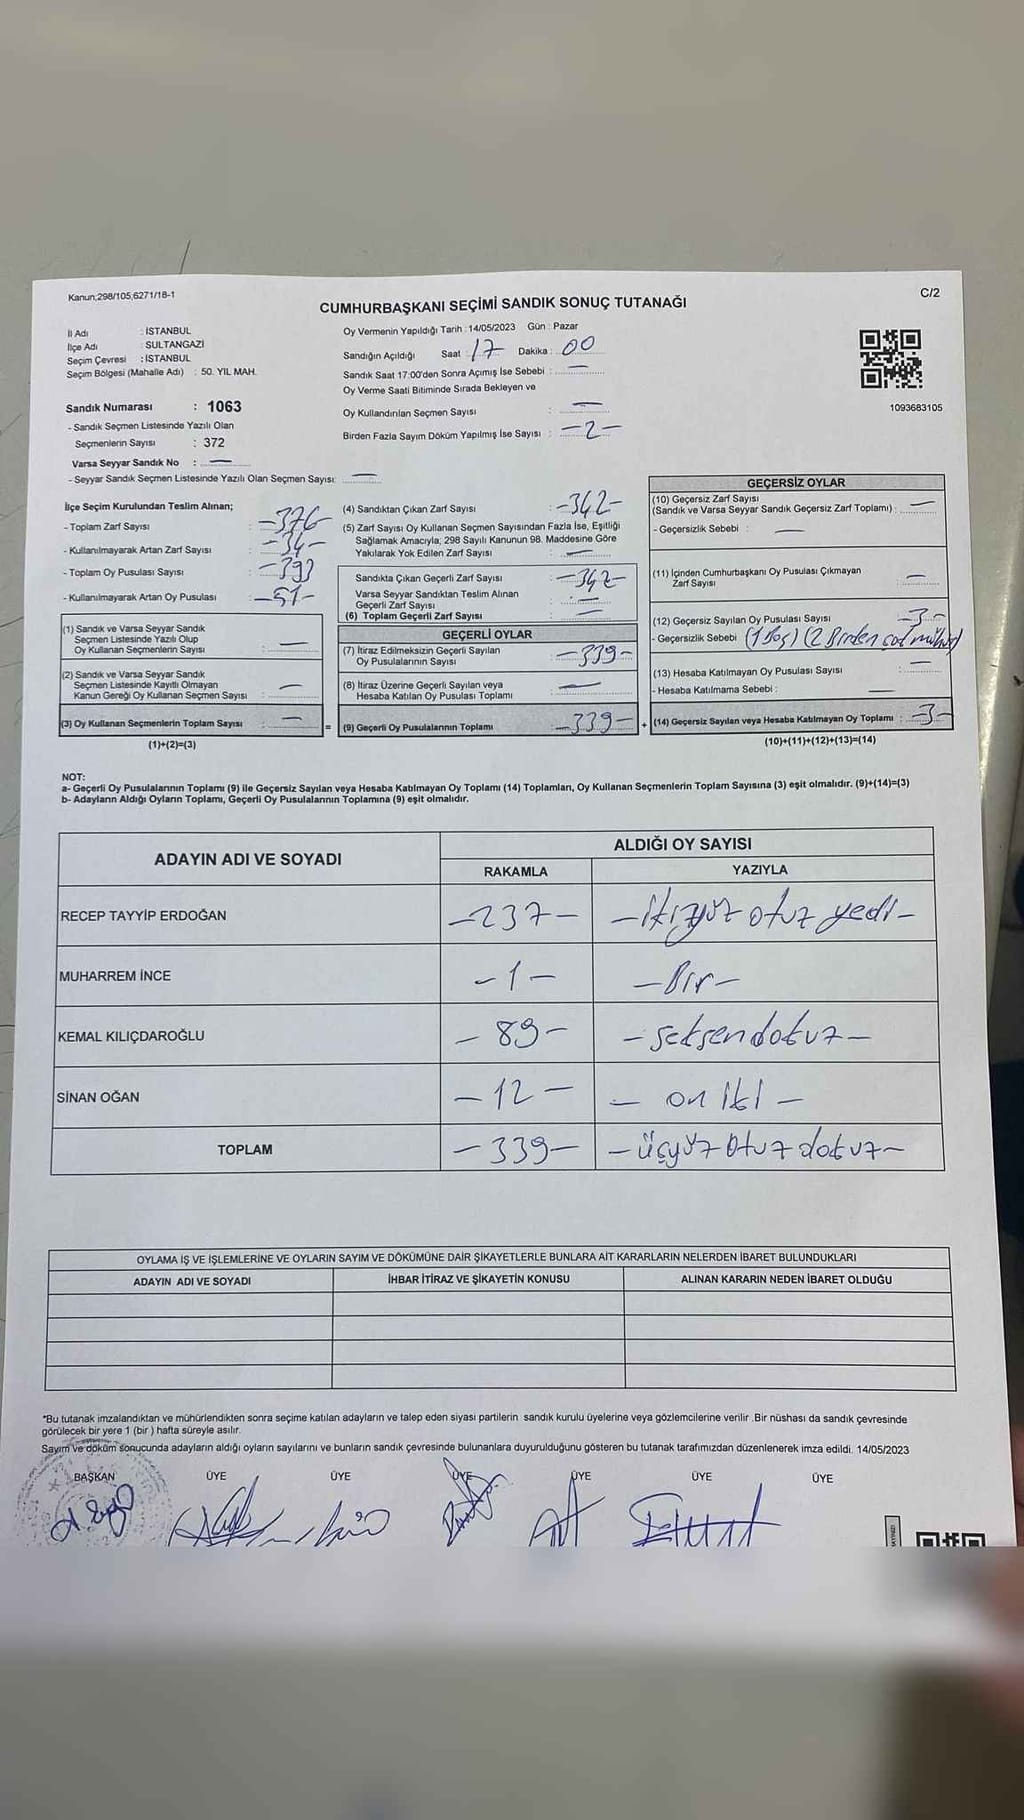 Kanun;298/105;6271/18-1
C/2
CUMHURBAŞKANI SEÇİMİ SANDIK SONUÇ TUTANAĞI
İl Adı : İSTANBUL
İlçe Adı : SULTANGAZİ
Seçim Çevresi : İSTANBUL
Seçim Bölgesi (Mahalle Adı) : 50. YIL MAH.
Sandık Numarası : 1063
- Sandık Seçmen Listesinde Yazılı Olan
Seçmenlerin Sayısı : 372
Varsa Seyyar Sandık No : —
- Seyyar Sandık Seçmen Listesinde Yazılı Olan Seçmen Sayısı: —
Oy Vermenin Yapıldığı Tarih : 14/05/2023 Gün : Pazar
Sandığın Açıldığı Saat : 17 Dakika : 00
Sandık Saat 17:00'den Sonra Açımış İse Sebebi : —
Oy Verme Saati Bitiminde Sırada Bekleyen ve
Oy Kullandırılan Seçmen Sayısı : —
Birden Fazla Sayım Döküm Yapılmış İse Sayısı : -2-
1093683105
İlçe Seçim Kurulundan Teslim Alınan;
- Toplam Zarf Sayısı : -376-
- Kullanılmayarak Artan Zarf Sayısı : -34-
- Toplam Oy Pusulası Sayısı : -393-
- Kullanılmayarak Artan Oy Pusulası : -51-
(1) Sandık ve Varsa Seyyar Sandık
Seçmen Listesinde Yazılı Olup
Oy Kullanan Seçmenlerin Sayısı : —
(2) Sandık ve Varsa Seyyar Sandık
Seçmen Listesinde Kayıtlı Olmayan
Kanun Gereği Oy Kullanan Seçmen Sayısı : —
(3) Oy Kullanan Seçmenlerin Toplam Sayısı : —
(1)+(2)=(3)
(4) Sandıktan Çıkan Zarf Sayısı : -342-
(5) Zarf Sayısı Oy Kullanan Seçmen Sayısından Fazla İse, Eşitliği
Sağlamak Amacıyla; 298 Sayılı Kanunun 98. Maddesine Göre
Yakılarak Yok Edilen Zarf Sayısı : —
Sandıkta Çıkan Geçerli Zarf Sayısı : -342-
Varsa Seyyar Sandıktan Teslim Alınan
Geçerli Zarf Sayısı : —
(6) Toplam Geçerli Zarf Sayısı : —
GEÇERLİ OYLAR
(7) İtiraz Edilmeksizin Geçerli Sayılan
Oy Pusulalarının Sayısı : -339-
(8) İtiraz Üzerine Geçerli Sayılan veya
Hesaba Katılan Oy Pusulası Toplamı : —
= (9) Geçerli Oy Pusulalarının Toplamı : -339-
GEÇERSİZ OYLAR
(10) Geçersiz Zarf Sayısı
(Sandık ve Varsa Seyyar Sandık Geçersiz Zarf Toplamı) : —
- Geçersizlik Sebebi : —
(11) İçinden Cumhurbaşkanı Oy Pusulası Çıkmayan
Zarf Sayısı : —
(12) Geçersiz Sayılan Oy Pusulası Sayısı : -3-
- Geçersizlik Sebebi : (1 Boş) (2 Birden çok mühür)
(13) Hesaba Katılmayan Oy Pusulası Sayısı : —
- Hesaba Katılmama Sebebi : —
+ (14) Geçersiz Sayılan veya Hesaba Katılmayan Oy Toplamı : -3-
(10)+(11)+(12)+(13)=(14)
NOT:
a- Geçerli Oy Pusulalarının Toplamı (9) ile Geçersiz Sayılan veya Hesaba Katılmayan Oy Toplamı (14) Toplamları, Oy Kullanan Seçmenlerin Toplam Sayısına (3) eşit olmalıdır. (9)+(14)=(3)
b- Adayların Aldığı Oyların Toplamı, Geçerli Oy Pusulalarının Toplamına (9) eşit olmalıdır.
ADAYIN ADI VE SOYADI
ALDIĞI OY SAYISI
RAKAMLA YAZIYLA
RECEP TAYYİP ERDOĞAN -237- -ikiyüz otuz yedi-
MUHARREM İNCE -1- -Bir-
KEMAL KILIÇDAROĞLU -89- -seksendokuz-
SİNAN OĞAN -12- -on iki-
TOPLAM -339- -üçyüz otuz dokuz-
OYLAMA İŞ VE İŞLEMLERİNE VE OYLARIN SAYIM VE DÖKÜMÜNE DAİR ŞİKAYETLERLE BUNLARA AİT KARARLARIN NELERDEN İBARET BULUNDUKLARI
ADAYIN ADI VE SOYADI İHBAR İTİRAZ VE ŞİKAYETİN KONUSU ALINAN KARARIN NEDEN İBARET OLDUĞU
*Bu tutanak imzalandıktan ve mühürlendikten sonra seçime katılan adayların ve talep eden siyasi partilerin sandık kurulu üyelerine veya gözlemcilerine verilir .Bir nüshası da sandık çevresinde
görülecek bir yere 1 (bir ) hafta süreyle asılır.
Sayım ve döküm sonucunda adayların aldığı oyların sayılarını ve bunların sandık çevresinde bulunanlara duyurulduğunu gösteren bu tutanak tarafımızdan düzenlenerek imza edildi. 14/05/2023
BAŞKAN ÜYE ÜYE ÜYE ÜYE ÜYE ÜYE